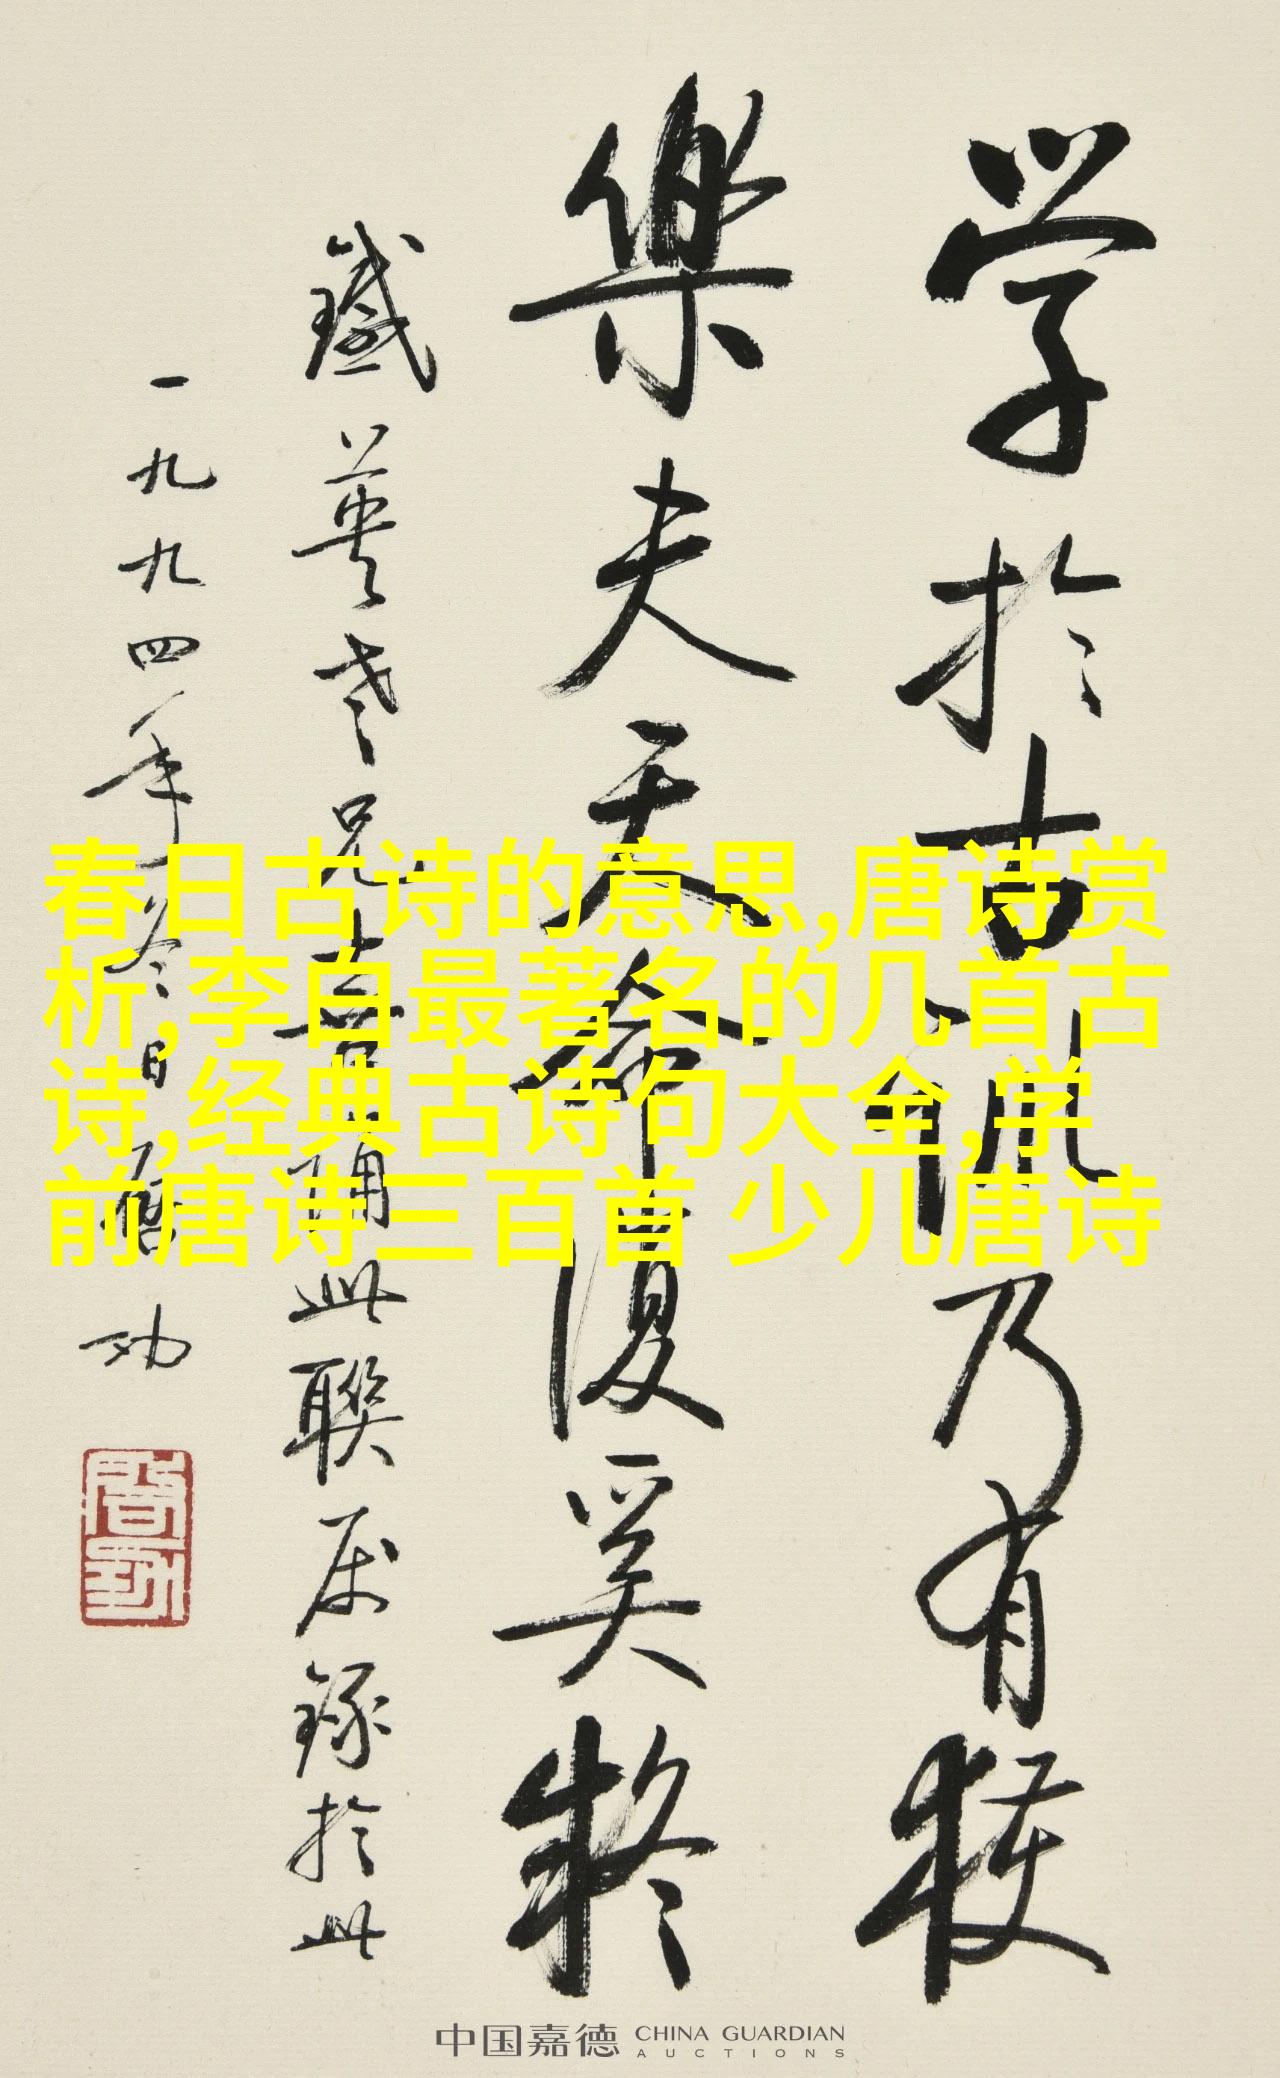 学於古訓乃有獲
樂夫天命復奚疑
鐵英老兄喜誦此聯属録於此
一九九四年冬日啓功
啓功
春日古诗的意思,唐诗赏
析,李白最著名的几首古
诗,经典古诗句大全,学
前唐诗三百首 少儿唐诗
中国嘉德 CHINA GUARDIAN
AUCTIONS